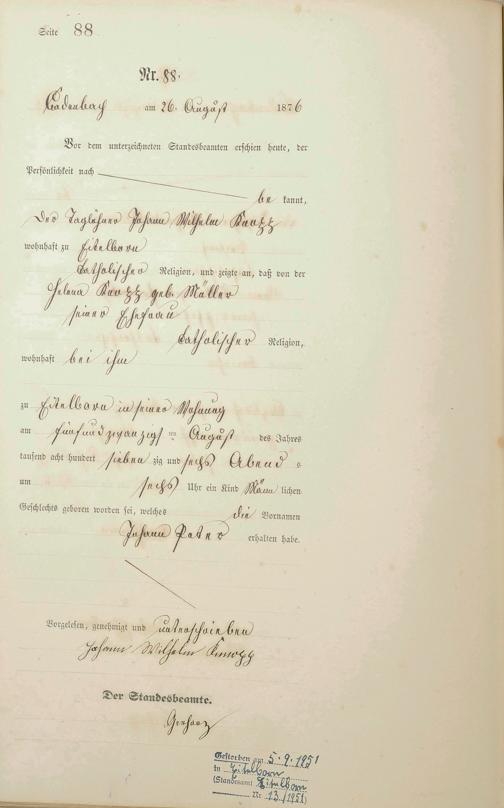 Seite 88
Nr. 88.
Cadenbach am 26. August 1876
Vor dem unterzeichneten Standesbeamten erschien heute, der
Persönlichkeit nach
be kannt,
der Taglöhner Johann Wilhelm Knopp
wohnhaft zu Eitelborn
katholischer Religion, und zeigte an, daß von der
Helena Knopp geb. Müller
seiner Ehefrau
katholischer Religion,
wohnhaft bei ihm
zu Eitelborn in seiner Wohnung
am fünfundzwanzigsten August des Jahres
tausend acht hundert sieben zig und sechs Abends
um sechs Uhr ein Kind männ lichen
Geschlechts geboren worden sei, welches die Vornamen
Johann Peter erhalten habe.
Vorgelesen, genehmigt und unterschrieben
Johann Wilhelm Knopp
Der Standesbeamte.
Gestorben am 5.9.1951
in Eitelborn
(Standesamt Eitelborn
Nr. 13/1951)